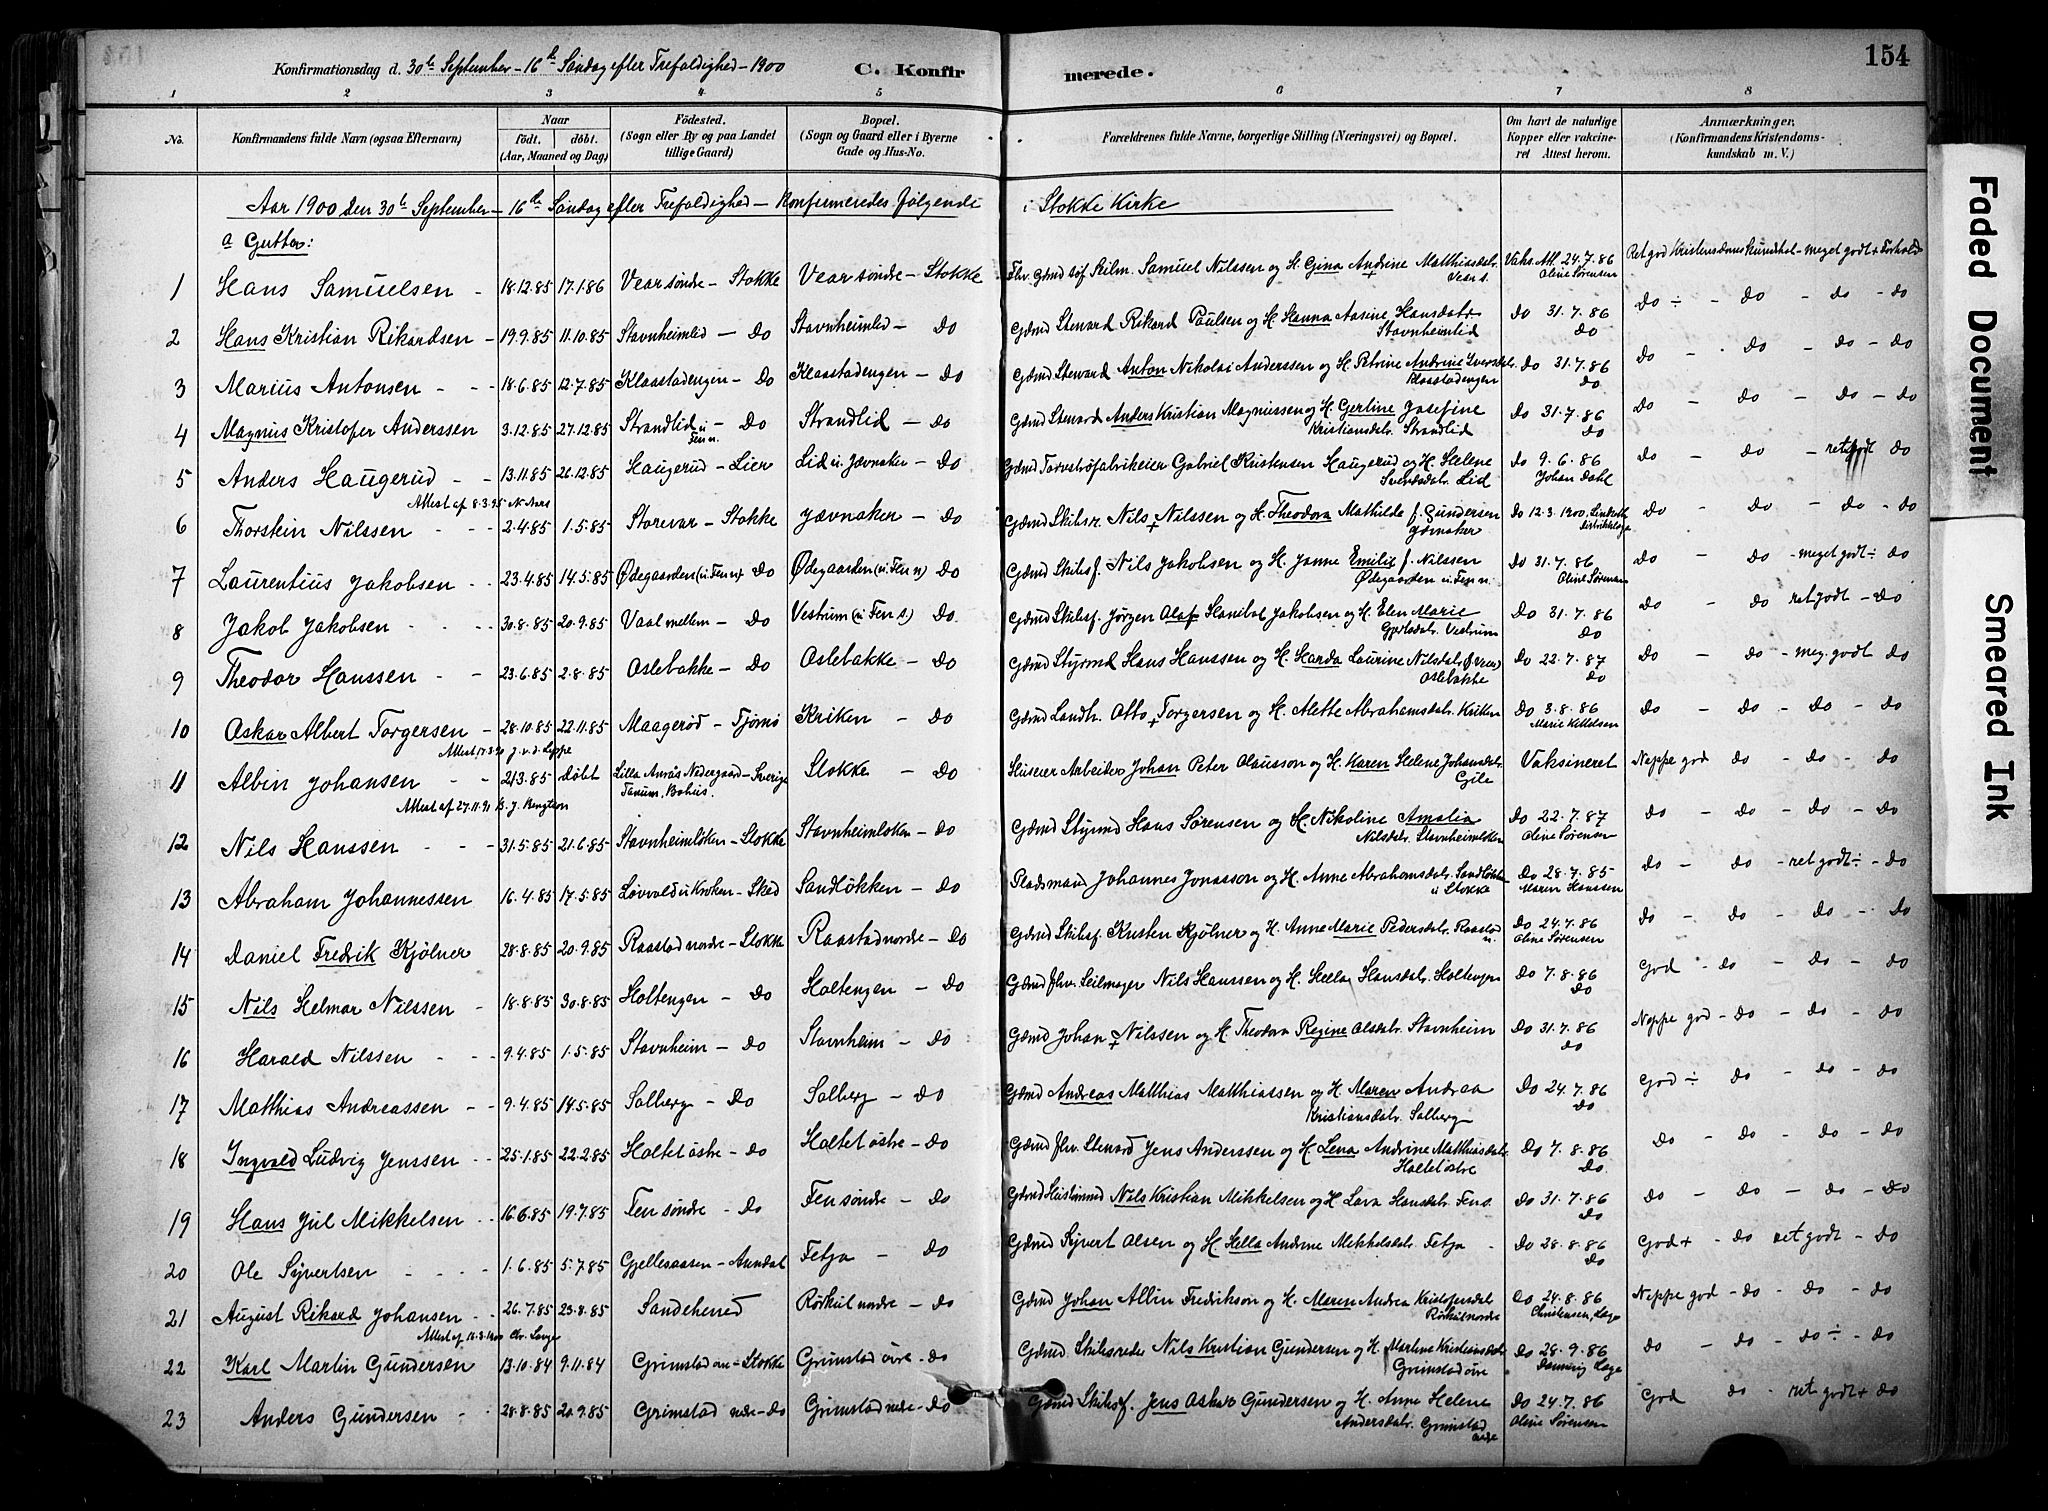 154
Konfirmationsdag d. 30te September - 16de Søndag efter Trefoldighed - 1900 C. Konfirmerede.
1 2 3 4 5 6 7 8
No. Konfirmandens fulde Navn (ogsaa Efternavn) Naar født. døbt. (Aar, Maaned og Dag) Fødested. (Sogn eller By og paa Landet tillige Gaard) Bopæl. (Sogn og Gaard eller i Byerne Gade og Hus-No.
Forældrenes fulde Navne, borgerlige Stilling (Næringsvei) og Bopæl. Om havt de naturlige Kopper eller vakcineret Attest herom. Anmærkninger. (Konfirmandens Kristendomskundskab m. V.)
Aar 1900 den 30te September - 16de Søndag efter Trefoldighed - Konfirmeredes følgende i Stokke Kirke
a Gutter:
1 Hans Samuelsen - 18.12.85 17.1.86 Vear søndre - Stokke Vear søndre - Stokke Fhv. Gdmd Samuel Nilssen og H. Gina Andrine Matthiasdatr. Vear s. Vaks Att. 24.7.86 Oline Sørensen Ret god Kristendomskundskab - meget godt + Forhold
2 Hans Kristian Rikardsen - 19.9.85 11.10.85 Stavnheimlid - do Stavnheimlid - do Gdmd Steward Rikard Paulsen og H. Hanna Aasine Hansdatr. Stavnheimlid do 31.7.86 do do ÷ - do - do - do
3 Marius Antonsen - - 18.6.85 12.7.85 Klaastadengen - do Klaastadengen - do Gdmd Steward Anton Nikolai Anderssen og H. Petrine Andrine Iversdatr. Klaastadengen do 31.7.86 do do - do - do - do
4 Magnus Kristofer Anderssen 3.12.85 27.12.85 Strandlid u. Fen n. - do Strandlid - do Gdmd Steward Anders Kristian Magnussen og H. Gerline Josefine Kristiansdatr. Strandlid do 31.7.86 do do - do - do - do
5 Anders Haugerud - - 13.11.85 26.12.85 Haugerud - Lier Lid u. Jævnaker - do Gdmd Torvströfabrikeier Gabriel Kristensen Haugerud og H. Helene Sverdsdatr. Lid do 9.6.86 Johan Dahl do - do - ret godt do
Attest af 8.3.95 N. Aars
6 Thorstein Nilssen - - 2.4.85 1.5.85 Storevar - Stokke Jævnaker - do Gdmd Skibsr. Nils Nilssen og H. Theodora Mathilde f. Gundersen Jævnaker do 12.3.1900, distriktslæge do - do - do - do
7 Laurentius Jakobsen - - 23.4.85 14.5.85 Ødegaarden (u. Fen n) do Ødegaarden (u. Fen n) do Gdmd Skibsf. Nils Jakobsen og H. Janne Emilie f. Nilssen Ødegaarden u. Fen n. do 31.7.86 Oline Sørensen do - do - meget godt ÷ do
8 Jakob Jakobsen - - - 30.8.85 20.9.85 Vaal mellem - do Vestrum (u Fen s) do. Gdmd Skibsf. Jörgen Olaf Hanibal Jakobsen og H. Elen Marie Gjertsdatr. Vestrum do 31.7.86 do do - do ret godt - do
9 Theodor Hanssen - - 23.6.85 2.8.85 Oslebakke - do Oslebakke - do Gdmd Styrmd Hans Hanssen og H. Harda Laurine Nilsdatr. Oslebakke do 22.7.87 do do - do - meg. godt do
10 Oskar Albert Torgersen - 28.10.85 22.11.85 Maagerød - Tjømø Kriken - do Gdmd Landh. Otto Torgersen og H. Mette Abrahamsdatr. Kriken do 3.8.86 Marie Kittelsen do - do - do - do
11 Albin Johansen - - 21.3.85 døbt Lilla Anrås Nedergaard - Sverige Tanum, Bohus. Stokke - do Sliserer Arbeider Johan Peter Olausson og H. Karen Helene Johansdatr. Gile Vaksineret Neppe god do - do - do
Attest af 27.11.91 B. J. Bengtson
12 Nils Hanssen - - - 31.5.85 21.6.85 Stavnheimløken - Stokke Stavnheimløken - do Gdmd Styrmd Hans Sørensen og H. Nikoline Amalia Nilsdatr. Stavnheimløken do 22.7.87 Oline Sørensen do - do - do - do
13 Abraham Johannessen 16.4.85 17.5.85 Løvvald u Kroken - Sked Sandløkken - do Pladsmand Johannes Jonasson og H. Anne Abrahamsdatr. Sandløkken u Stokke do 28.7.85 Maren Hanssen do - do - ret godt ÷ - do
14 Daniel Fredrik Kjölner 28.8.85 20.9.85 Raastad nordre - Stokke Raastad nordre - do Gdmd Skibsf. Kristen Kjölner og H. Anne Marie Pedersdatr. Raastad n. do 24.7.86 Oline Sørensen do - do - do - do
15 Nils Helmar Nilssen - 18.8.85 30.8.85 Holtengen - do Holtengen - do Gdmd fhv. Seilmager Nils Hanssen og H. Hella Hansdatr. Holtengen do 7.8.86 do God - do - do - do
16 Harald Nilssen - - 9.4.85 1.5.85 Stavnheim - do Stavnheim - do Gdmd Johan Nilssen og H. Theodora Regine Olsdatr. Stavnheim do 31.7.86 do Neppe god - do - do - do
17 Matthias Andreassen - - 9.4.85 14.5.85 Solberg - do Solberg - do Gdmd Andreas Matthias Matthiassen og H. Maren Andrea Kristiansdatr. Solberg do 24.7.86 do God ÷ do - do - do
18 Ingvald Ludvig Jenssen - - 25.1.85 22.2.85 Holtet østre - do Holtet østre - do Gdmd fhv. Steward Jens Anderssen og H. Lena Andrine Matthiasdatr. Holtet østre do 7.8.86 do. do - do - do - do
19 Hans Jul Mikkelsen - - 16.6.85 19.7.85 Fen søndre - do Fen søndre - do Gdmd Nils Kristian Mikkelsen og H. Lava Hansdatr. Fen s. do 31.7.86 do do - do - do - do
20 Ole Syvertsen - - - - 1.6.85 5.7.85 Gjellesaasen - Arendal Fetja - do Gdmd Syvert Olsen og H. Hella Andrine Mikkelsdatr. Fetja - do 28.8.86 do God + - do ret godt - do
21 August Rikard Johansen - - 26.7.85 23.8.85 Sandeherred Rørkul nordre - do Gdmd Johan Albin Fredrikson og H. Maren Andrea Kristofersdatr Rørkul nordre do 24.8.86 Christensen, Læge Neppe god - do - do - do
22 Karl Martin Gundersen 13.10.84 9.11.84 Grimstad øvre - Stokke Grimstad øvre - do Gdmd. Skibsreder Nils Kristian Gundersen og H. Martine Kristiansdatr. Grimstad øvre do 28.9.86 Læge do - do - do ÷ - do
23 Anders Gundersen - - 28.8.85 20.9.85 Grimstad nedre - do Grimstad nedre - do Gdmd Skibsf. Jens Oskar Gundersen og H. Anne Helene Andersdatr. Grimstad nedre do 24.7.86 Oline Sørensen God do - ret godt + do
Faded Document
Smeared Ink